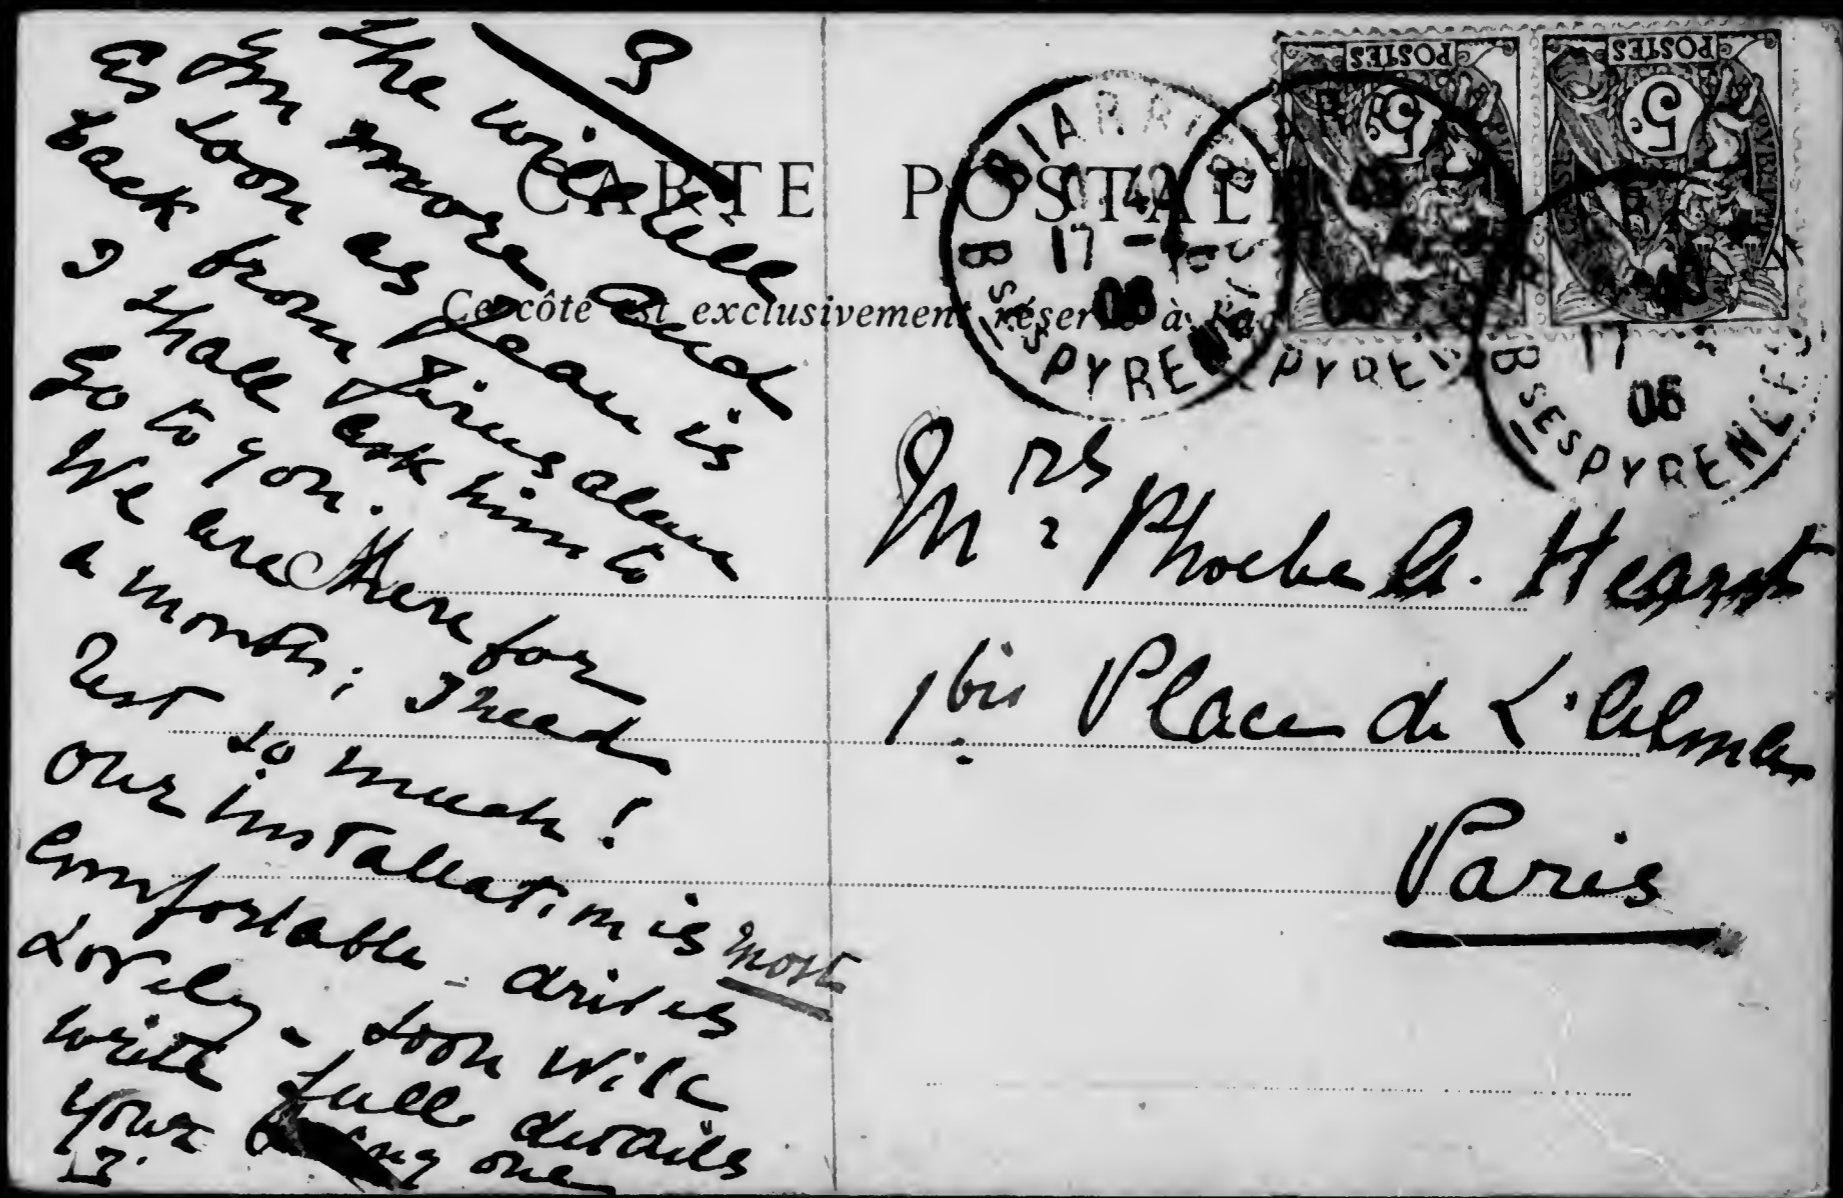 3
the will tell
you more and
as soon as Jean is
back from Jirusalem
I shall ask him to
go to you.
We are there for
a month; I need
rest so much!
our installation is most
comfortable - drives
lovely - soon will
write full details
your loving one
CARTE POSTALE
Ce côté est exclusivement réservé à l'a
BIARRITZ
17 -
06
BSES PYRENEES
POSTES
5
POSTES
5
BSES PYRENEES
06
Mrs Phoebe A. Hearst
1bis Place de L'Alma
Paris